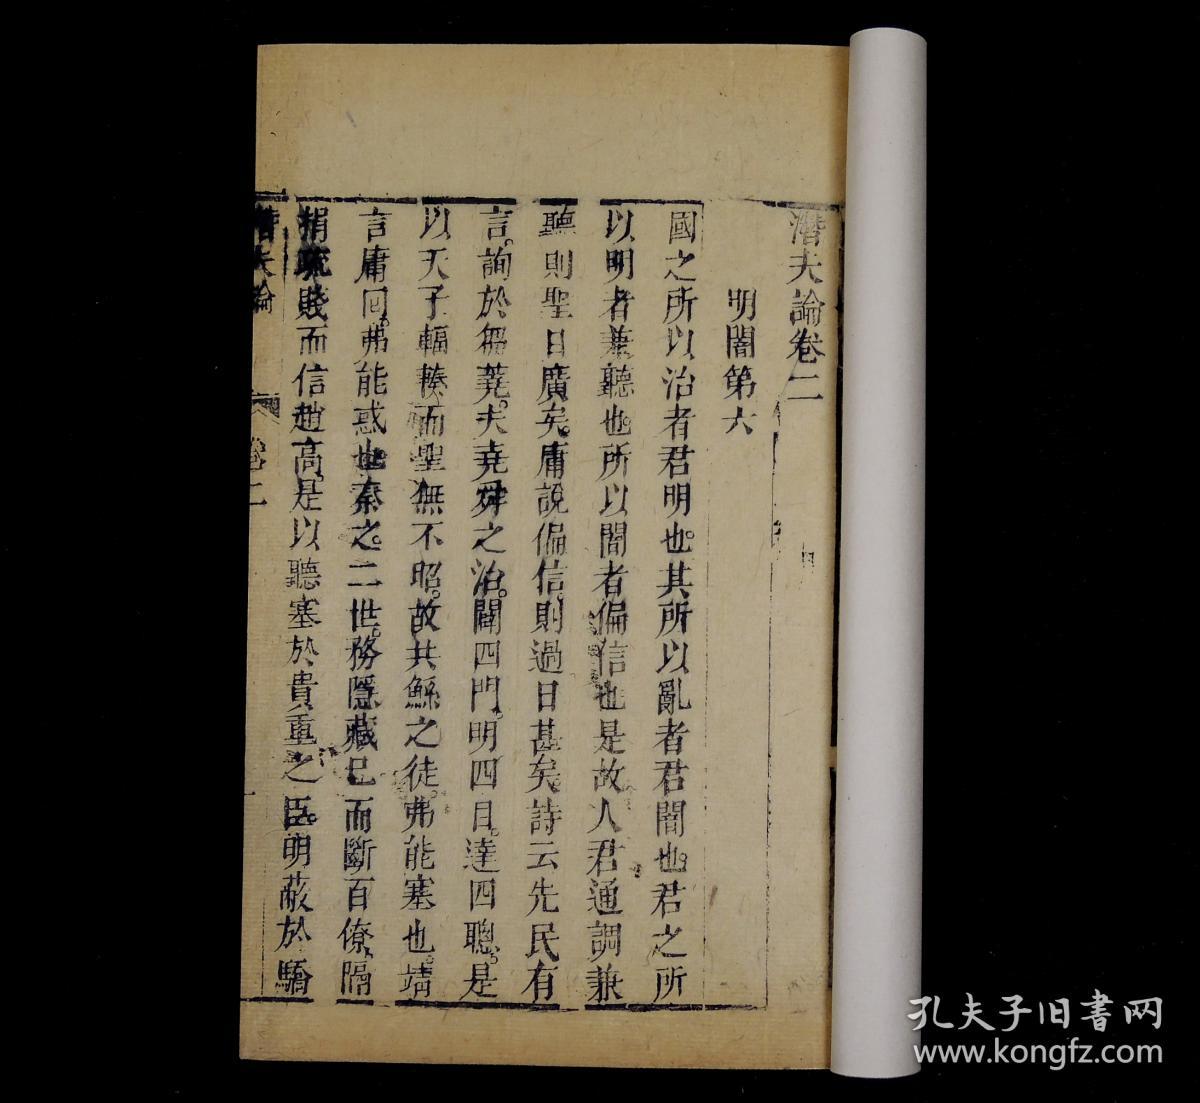 潛夫論卷二
明闇第六
國之所以治者君明也。其所以亂者君闇也。君之所
以明者兼聽也。所以闇者偏信也。是故人君通調兼
聽則聖日廣矣。庸說偏信則過日甚矣。詩云先民有
言。詢於芻蕘。夫堯舜之治。闢四門。明四目。達四聰。是
以天子輻輳而聖無不昭。故共鯀之徒。弗能塞也。靖
言庸回。弗能惑也。秦之二世。務隱藏己而斷百僚。隔
捐疏賤而信趙高。是以聽塞於貴重之臣。明蔽於驕
潛夫論 卷二 一
孔夫子旧书网
www.kongfz.com